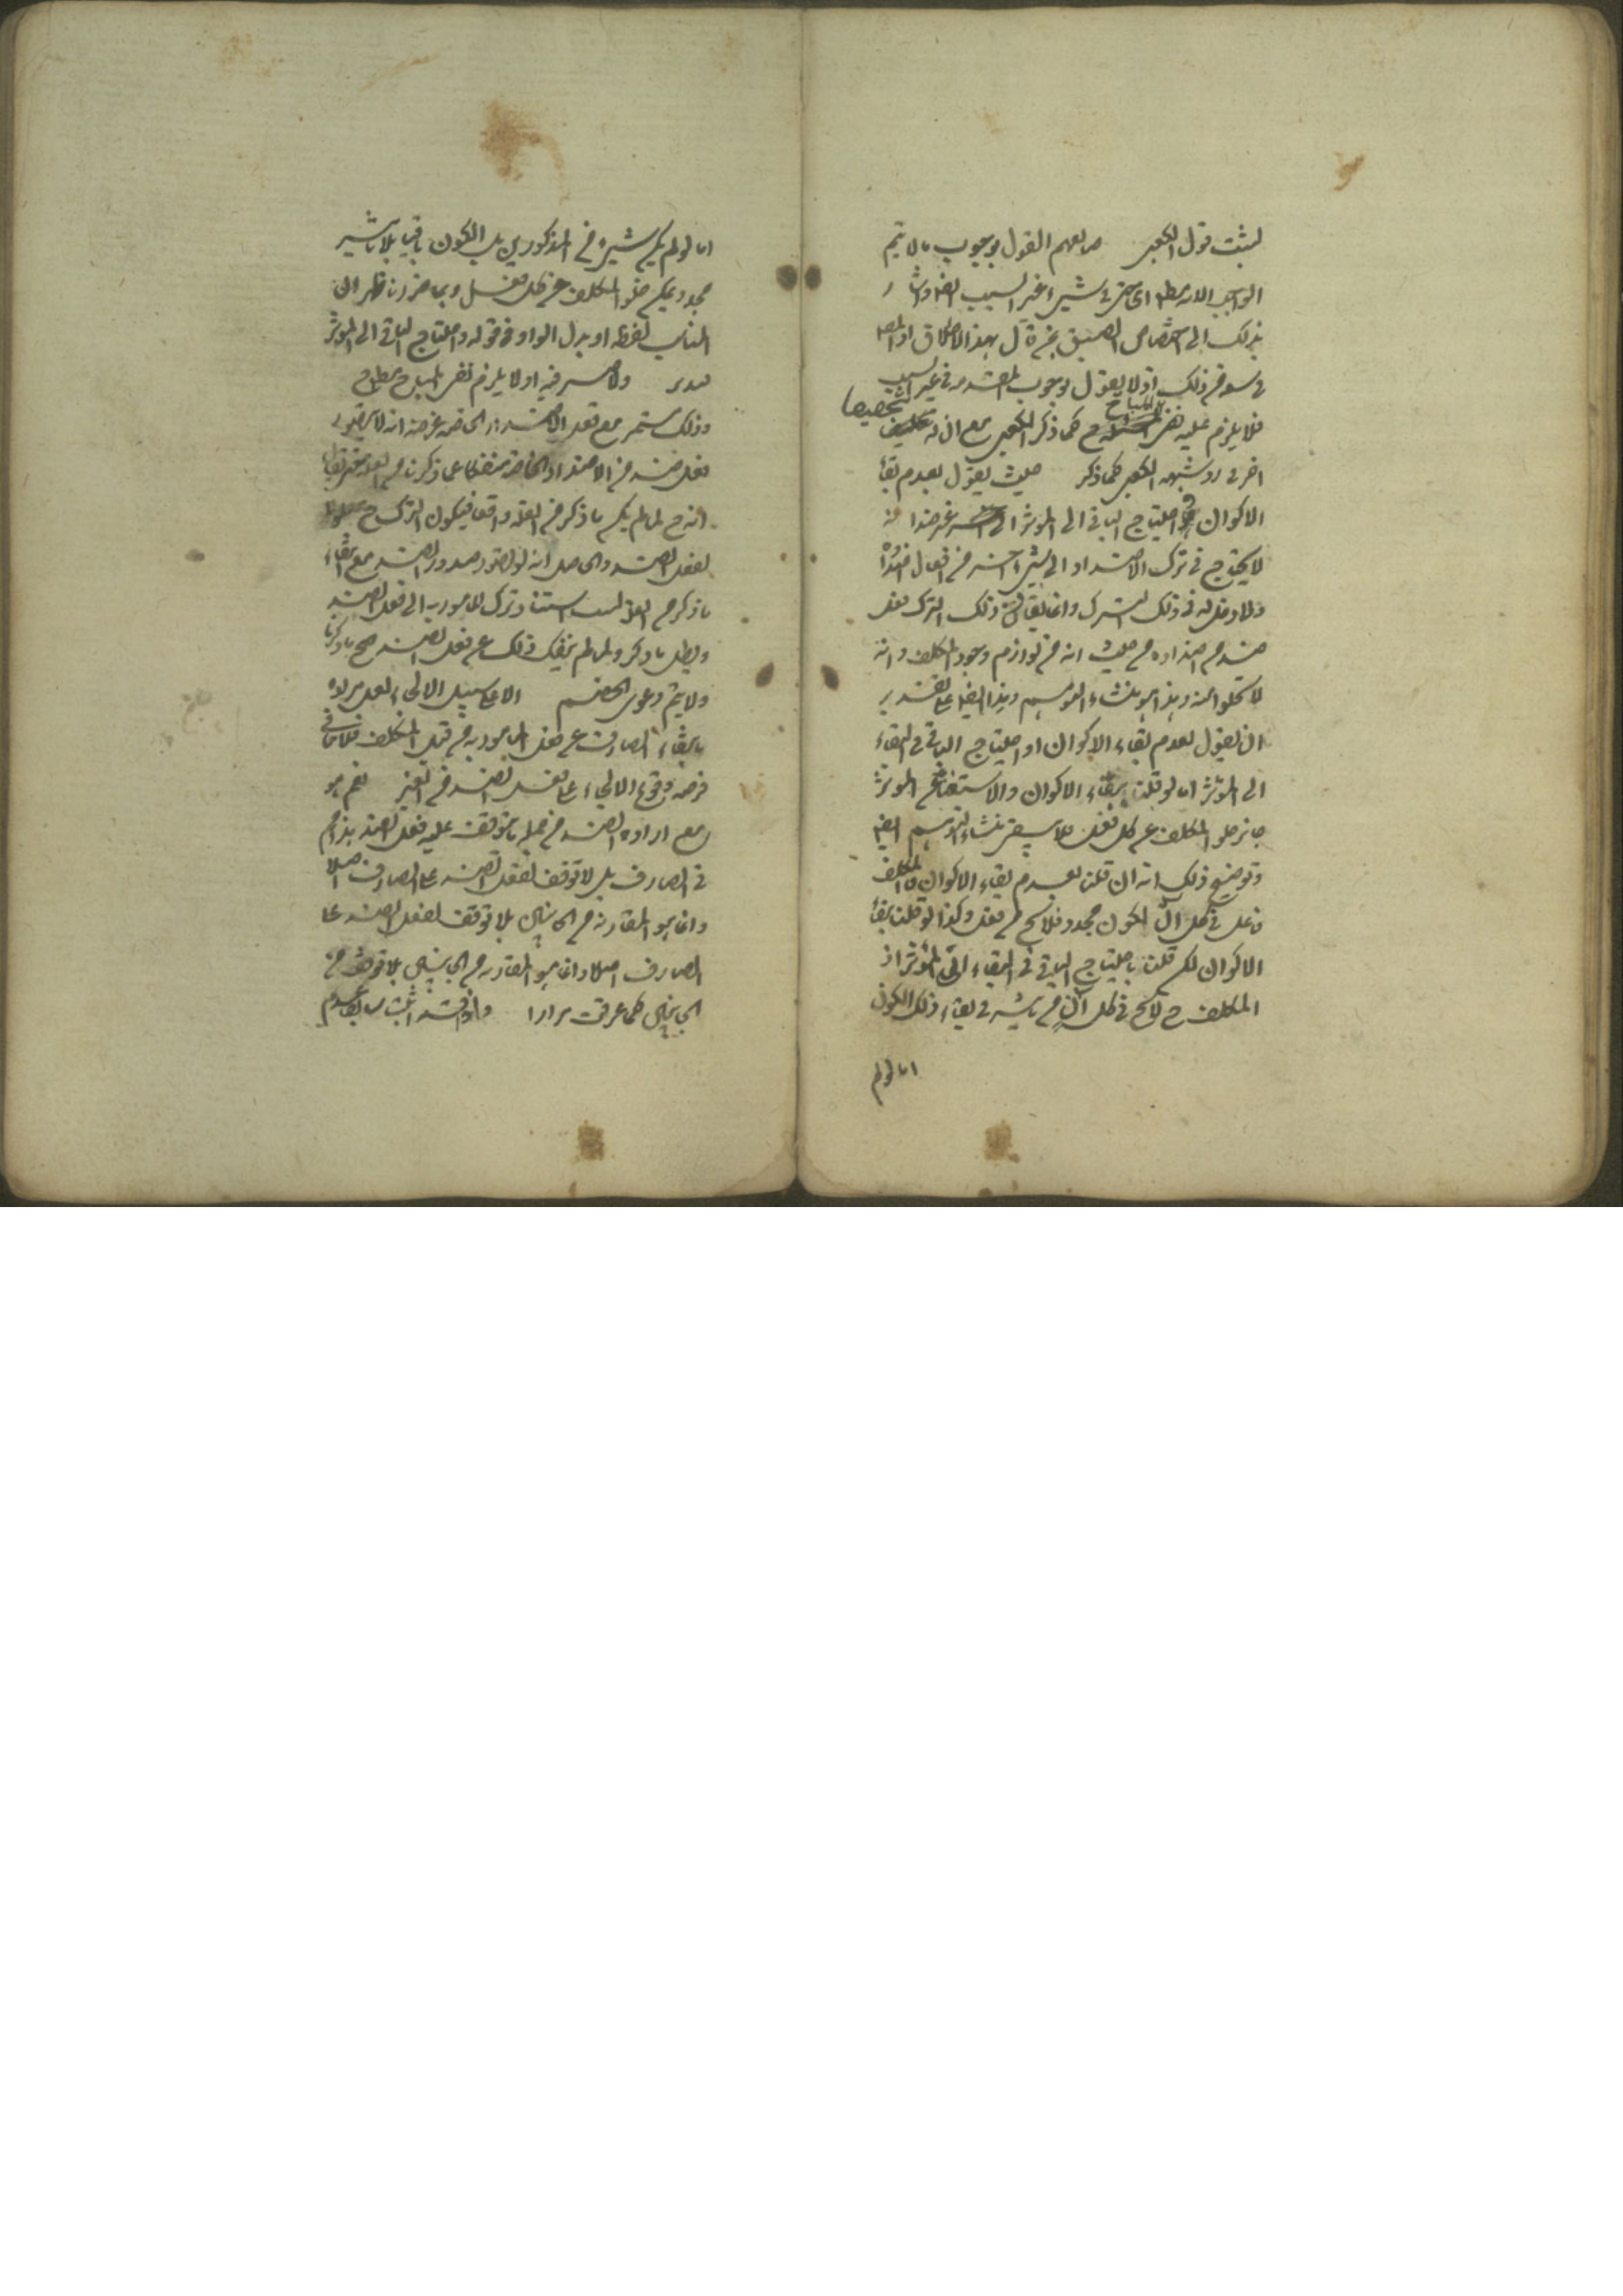 ليثبت قول الكعبى القول بوجوب ما لا يتم
الواجب الا به مطلقا اى حتى فى شىء غير السبب ايضا واشار
بذلك الى اختصاص الضيق بمن قال بهذا الاطلاق اذ المص
فى سعة من ذلك اذ لا يقول بوجوب المقدمة فى غير السبب
فلا يلزم عليه نفى المباح ح كما ذكر الكعبى مع ان له تخصيصا
اخر فى رد شبهه الكعبى كما ذكر حيث يقول بعدم بقاء
الاكوان احتياج الباقى الى الموثر الى
لا يحتاج فى ترك الاضداد الى شىء آخر من افعال اضداده
ولا دخل له فى ذلك الترك وانما يقارن ذلك الترك فعل
ضد من اضداده من حيث انه من لوازم وجود المكلف وانه
لا يخلوا عنه وهذا هو منشاء التوهم وهذا ايضا على تقدير
ان يقول بعدم بقاء الاكوان او احتياج الباقى فى البقاء
الى الموثر اما لو قلنا ببقاء الاكوان والاستغناء عن الموثر
جاز خلو المكلف عن كل فعل فلا يبقى منشاء التوهم ايضا
وتوضيح ذلك انه ان قلنا بعدم بقاء الاكوان فالمكلف
فاعل فى كل آن لكون مجدد فلا يخلو من فعل وكذا لو قلنا ببقاء
الاكوان لكن قلنا باحتياج الباقى فى البقاء الى المؤثر اذ
المكلف ح لا يخلو فى كل آن من تاثير فى بقاء ذلك الكون
اما لو لم
اما لو لم يكن شىء من المذكورين بل الكون باقيا بلا تاثير
مجدد يمكن خلو المكلف من كل فعل وبما ضررنا ظهر ان
المناسب لفظه او بدل الواو فى قوله واحتياج الباقى الى الموثر
فيه او لا يلزم نفى المباح مطلقا ح
وذلك مستمر مع فعل الاضداد الخاصه غرضه انه لا يتصور
فعل ضد من الاضداد الخاصة منفكا عما ذكرنا من العلة حتى يقال
انه ح لما لم يكن ما ذكر من العلة واقعا فيكون الترك ح
لفعل الضد والحاصل انه لو تصور صدور الضد مع انتفاء
ما ذكر من العلة استناد ترك المامور به الى فعل الضد
وبطل ما ذكر ولما لم ينفك ذلك عن فعل الضد صح ما ذكرنا
ولا يتم دعوى الخصم الا على سبيل الالجاء
بانتفاء الصارف عن فعل المامور به من قبل المكلف فلا ينافى
فرضه وقوع الالجاء على نفس الضد من الغير نعم هو
مع ارادة الضد من جملة ما يتوقف عليه فعل الضد هذا ثم
فى الصارف بل لا توقف لفعل الضد على الصارف اصلا
وانما هو المقارنة من الجانبين بلا توقف لفعل الضد على
الصارف اصلا وانما هو المقارنه من الجانبين بلا توقف من
الجانبين كما عرفت مرارا واذ قد اثبت سابقا عدم